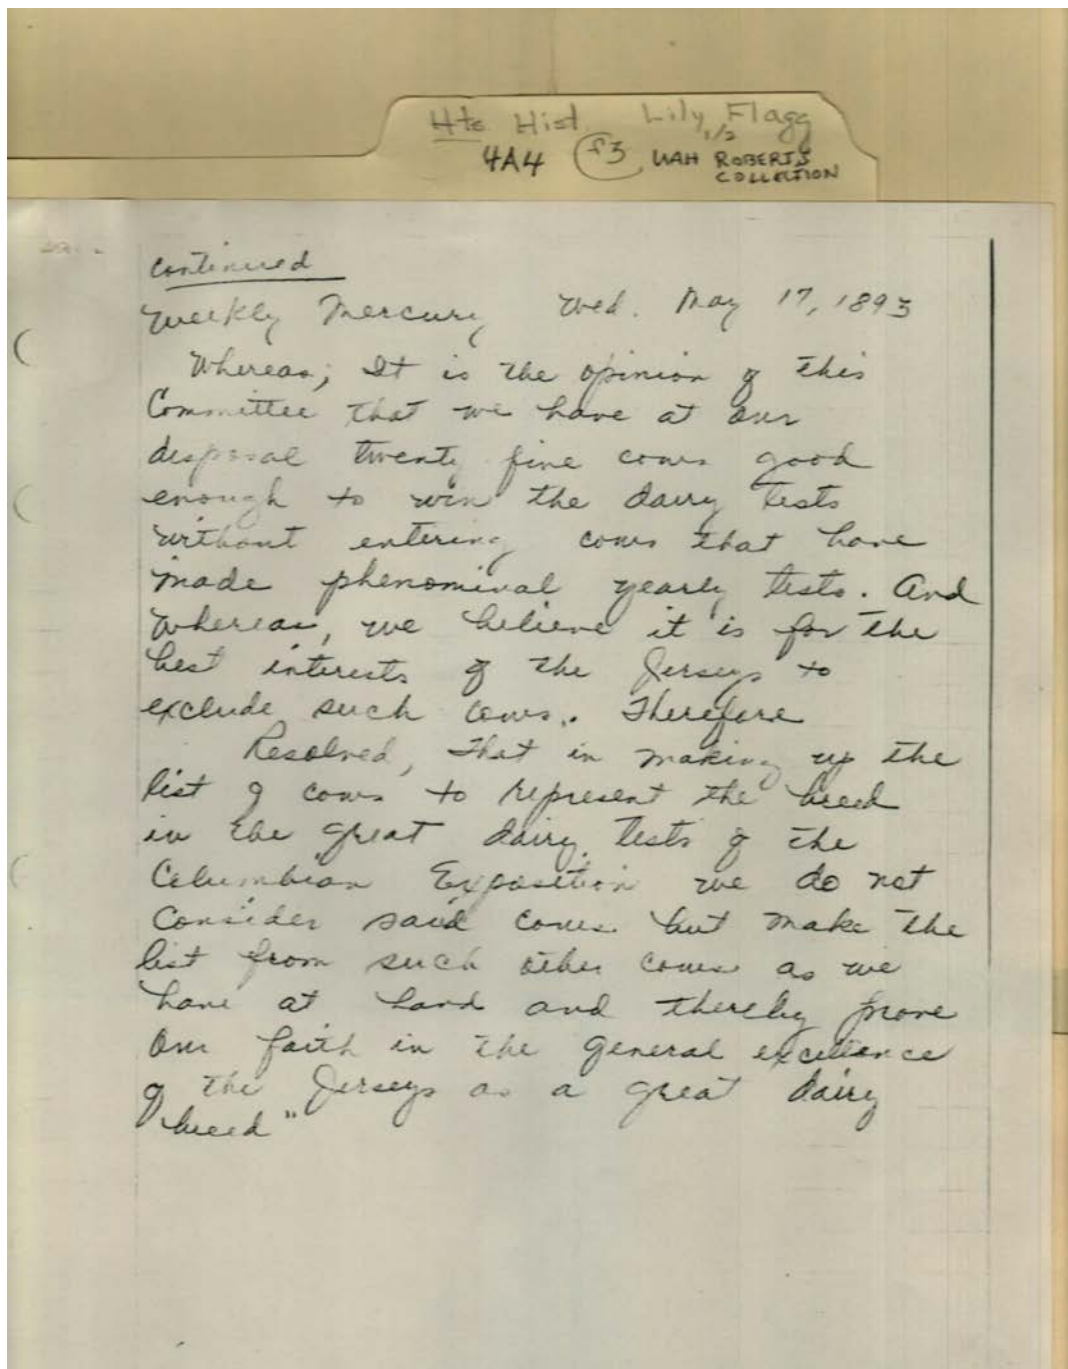 Hts. Hist. Lily Flagg
1/2
4A4 f3 UAH ROBERTS
COLLECTION
continued
Weekly Mercury Wed. May 17, 1893
Whereas; It is the opinion of this
Committee that we have at our
disposal twenty five cows good
enough to win the dairy tests
without entering cows that have
made phenominal yearly tests. And
whereas, we believe it is for the
best interests of the Jerseys to
exclude such cows. Therefore
Resolved, That in making up the
list of cows to represent the breed
in the great dairy tests of the
Columbian Exposition we do not
Consider said cows but make the
list from such other cows as we
have at hand and thereby prove
our faith in the general excellence
of the Jerseys as a great dairy
breed"